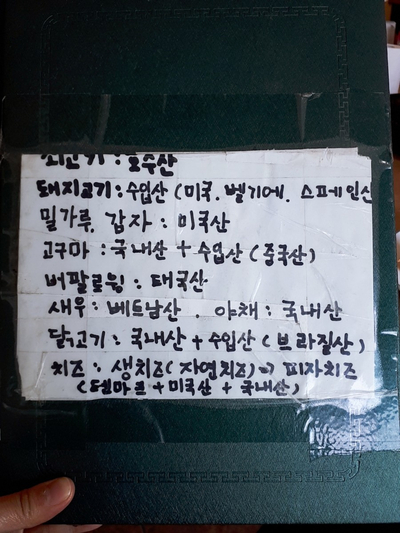 쇠고기 : 호주산
돼지고기 : 수입산 (미국. 벨기에. 스페인산
밀가루, 감자 : 미국산
고구마 : 국내산 + 수입산 (중국산)
버팔로윙 : 태국산
새우 : 베트남산 . 야채 : 국내산
닭고기 : 국내산 + 수입산 (브라질산)
치즈 : 생치즈(자연치즈) → 피자치즈
(덴마크 + 미국산 + 국내산)